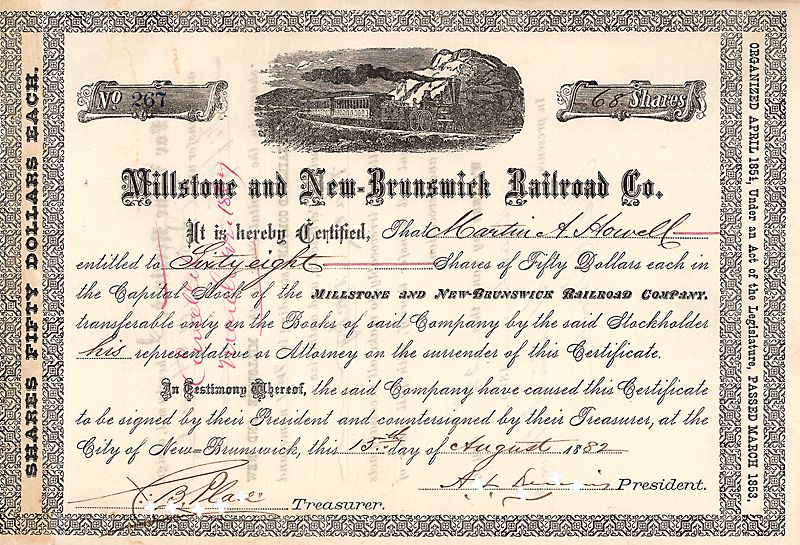 SHARES FIFTY DOLLARS EACH.
No 267
68 Shares
Millstone and New-Brunswick Railroad Co.
It is hereby Certified, That Martin A. Howell
entitled to Sixty eight Shares of Fifty Dollars each in
the Capital Stock of the MILLSTONE AND NEW-BRUNSWICK RAILROAD COMPANY.
transferable only on the Books of said Company by the said Stockholder
his representative or Attorney on the surrender of this Certificate.
In Testimony Whereof, the said Company have caused this Certificate
to be signed by their President and countersigned by their Treasurer, at the
City of New-Brunswick, this 15th day of August 1882
President.
Treasurer.
ORGANIZED APRIL 1851, Under an Act of the Legislature, PASSED MARCH 1853.